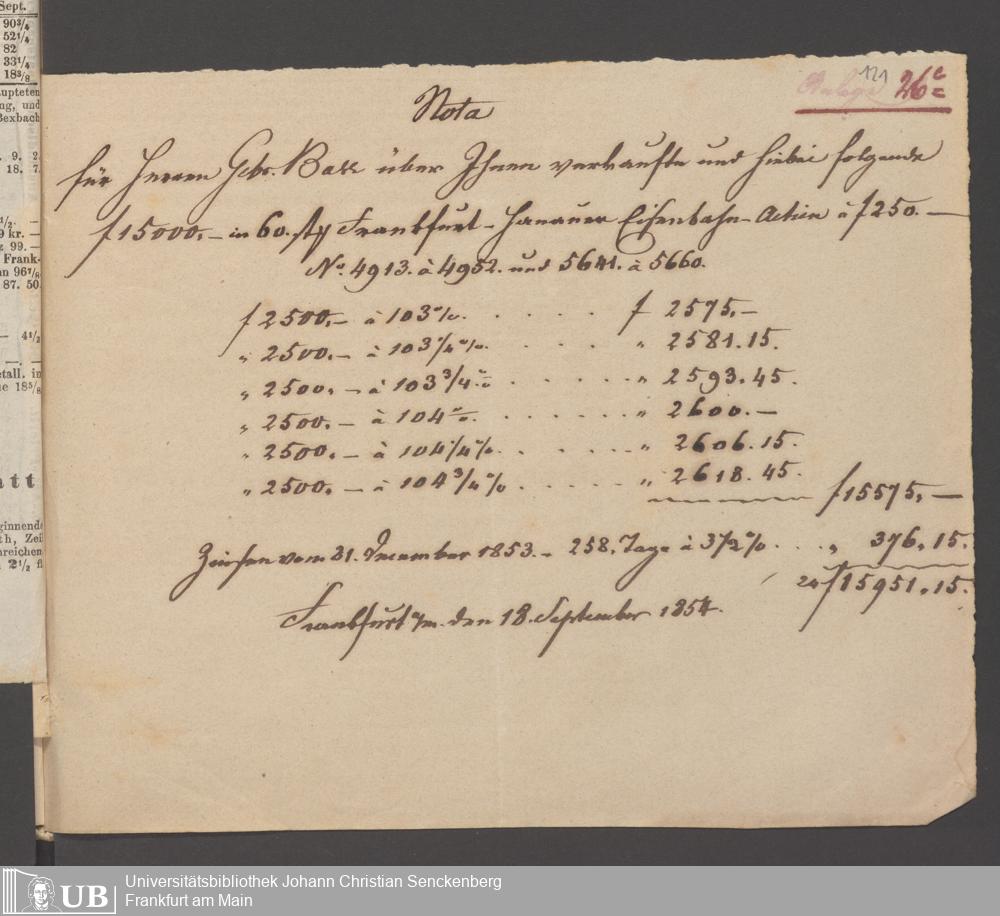 Sept.
90¾
52¼
82
33¼
18⅜
aupteten
ng, und
Bexbach
9. 2
18. 7
½. —
9 kr. —
99. —
Frank-
an 96⅞
87. 50
— 4½
etall. in
ue 18⅝
att
ginnende
th, Zeil
reichen
2½ fl
121
Anlage 26c
Nota
für Herren Gebr. über Ihnen verkaufte und hiebei folgende
f 15000,– in 60. Frankfurt-Hanauer Eisenbahn-Actien à f 250.—
No. 4913. à 4952. und 5641. à 5660.
f 2500,– à 103 %. . . . . f 2575,–
„ 2500,– à 103¼ %. . . . „ 2581.15.
„ 2500,– à 103¾ % . . . . „ 2593.45.
„ 2500,– à 104 %. . . . . . „ 2600.–
„ 2500,– à 104¼ %. . . . . „ 2606.15.
„ 2500,– à 104¾ % . . . . . „ 2618.45.
f 15575,—
Zinsen vom 31. December 1853 – 258. Tage à 3½ % . . . „ 376.15.
24 f 15951.15.
Frankfurt a/m. den 18. September 1854.
UB
Universitätsbibliothek Johann Christian Senckenberg
Frankfurt am Main